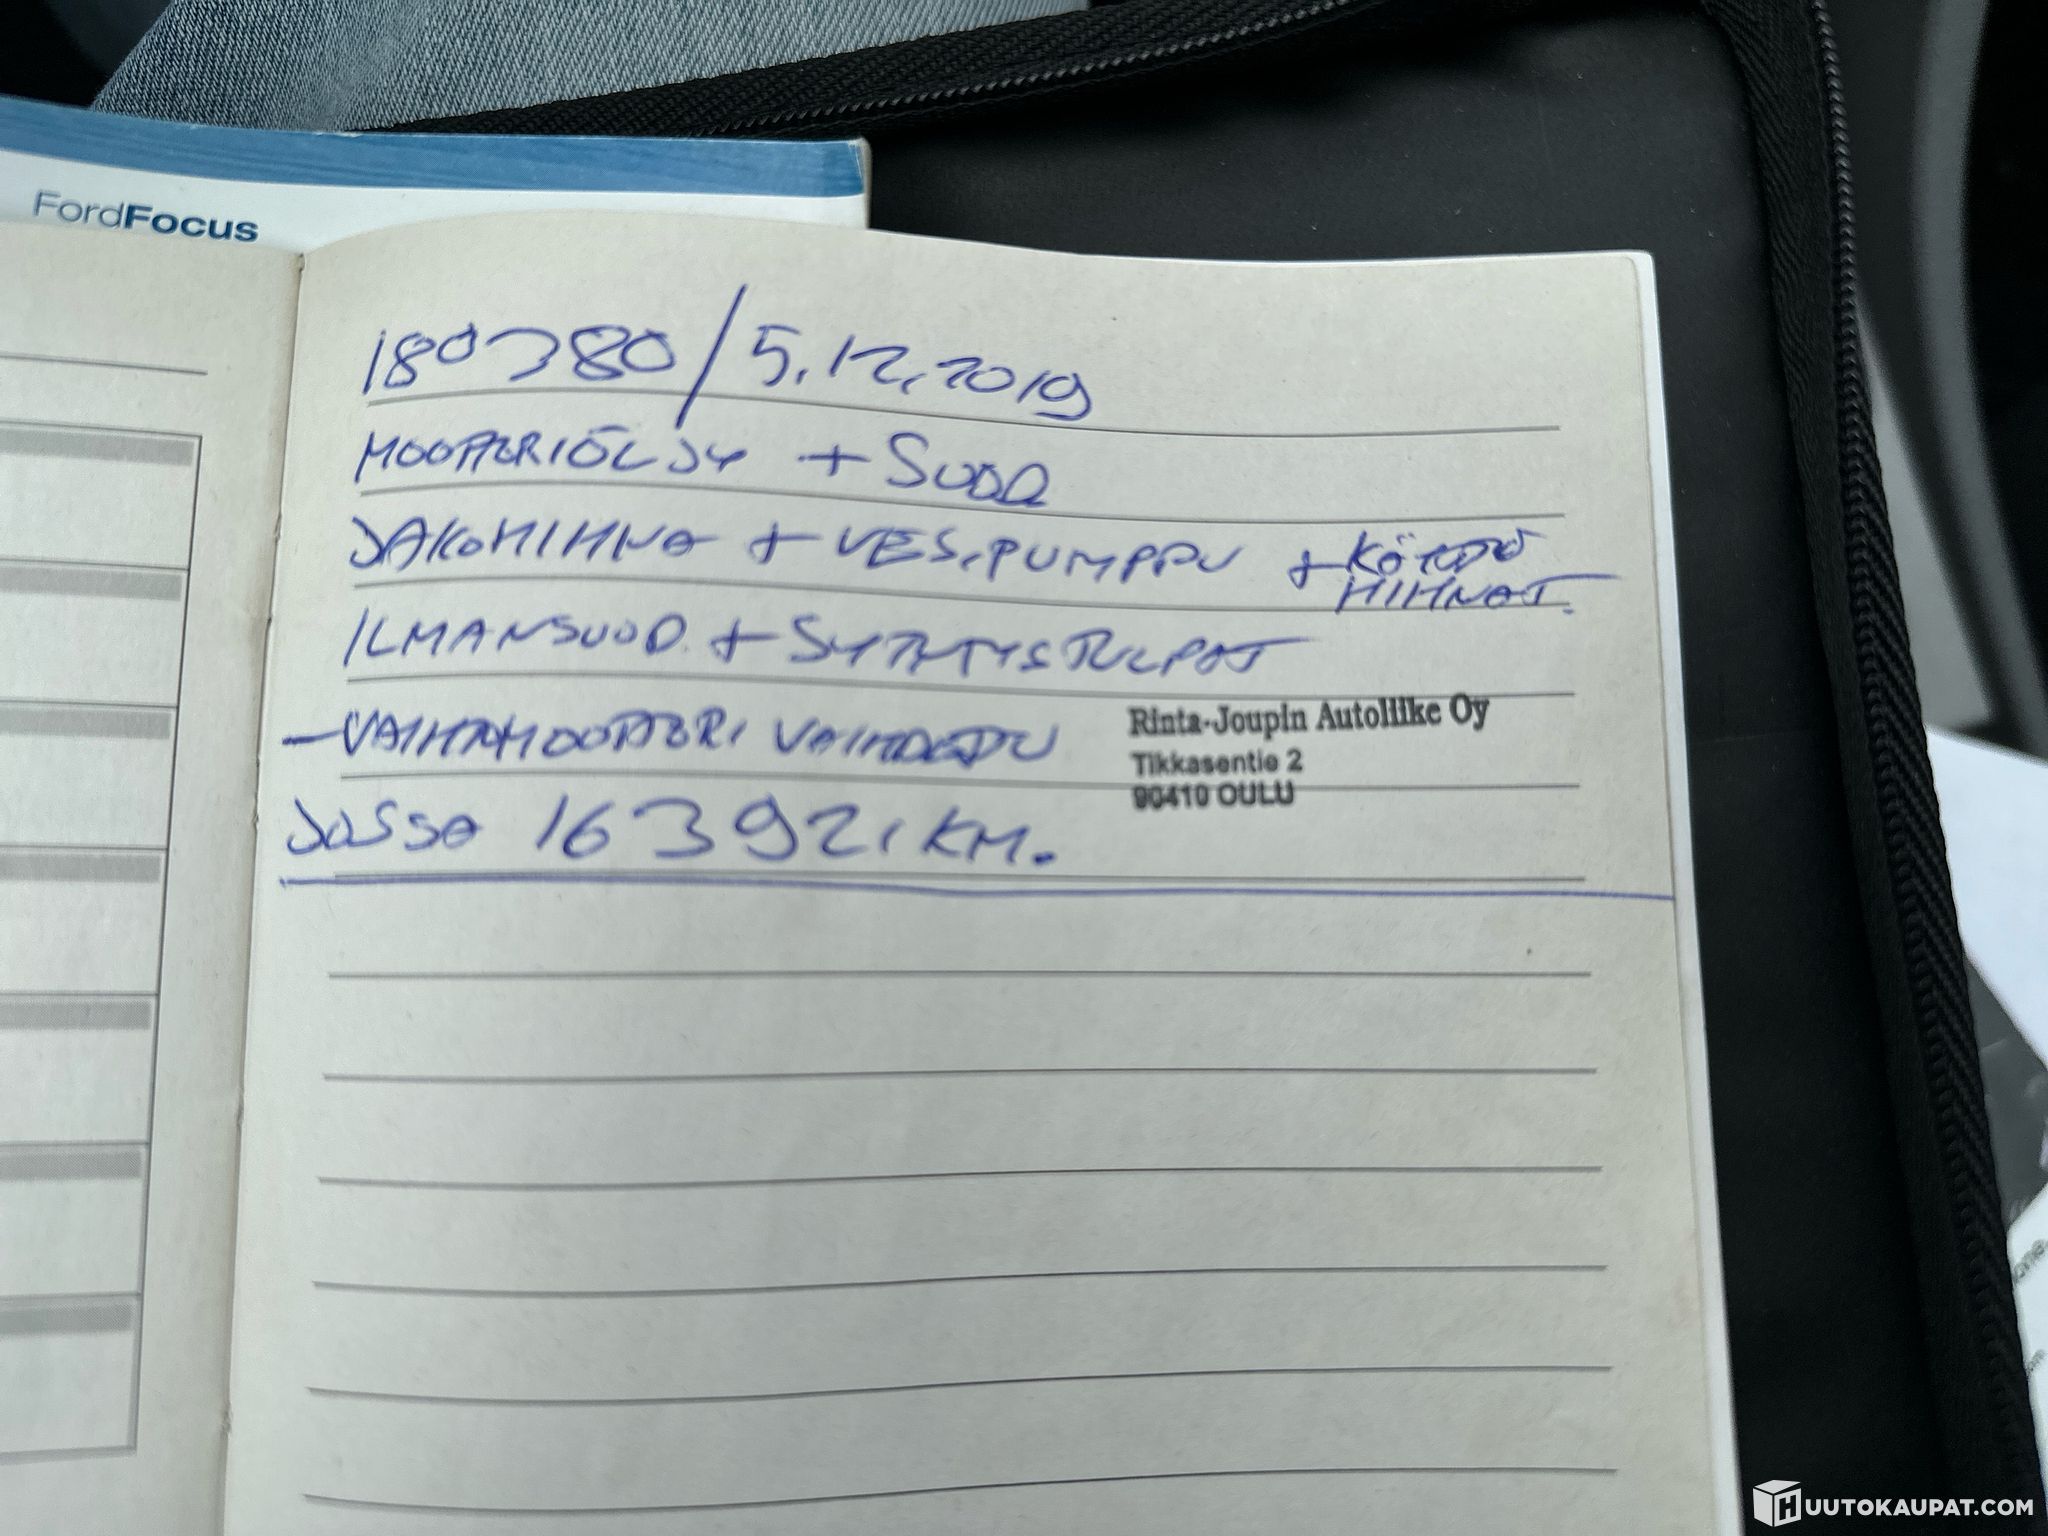 FordFocus
180380/5.12.2019
MOOTTORIÖLJY + SUOD
JAKOHIHNA + VESIPUMPPU + KÖYTTÖ
HIHNAT.
ILMANSUOD. + SYTYTYSTULPAT
- VAIHTOMOOTTORI VAIHDETTU
JOSSA 163921 KM.
Rinta-Joupin Autoliike Oy
Tikkasentie 2
90410 OULU
HUUTOKAUPAT.COM